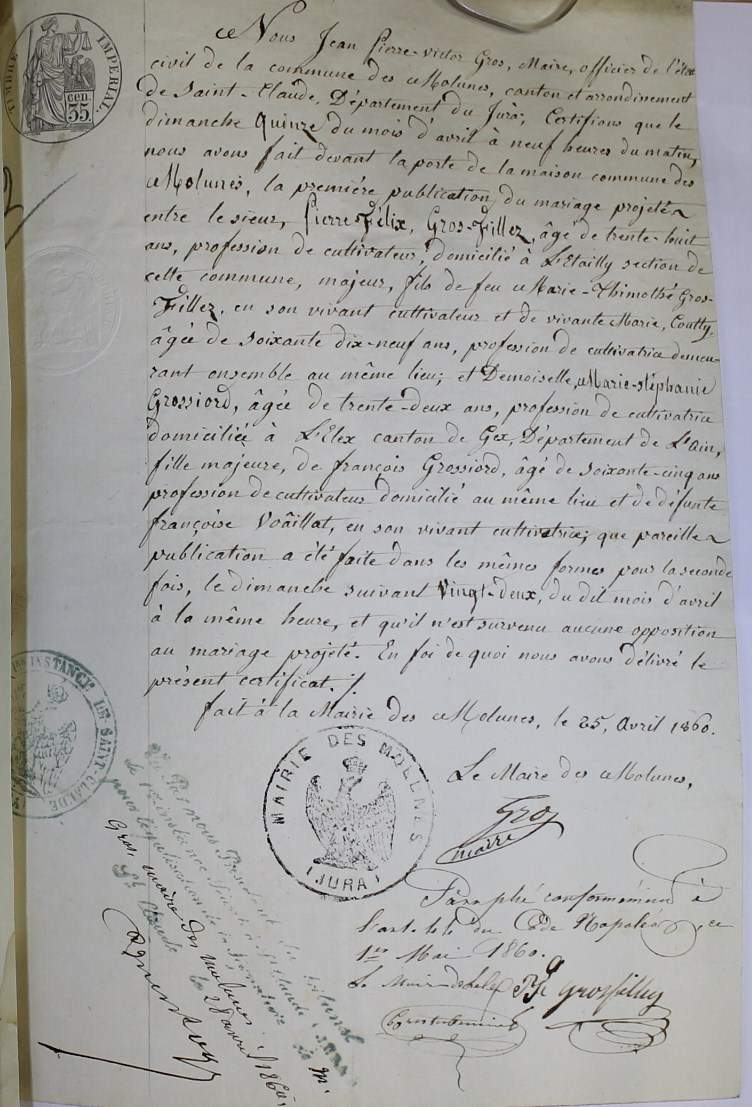 TIMBRE IMPERIAL.
55 cen.
Nous Jean Pierre-victor Gros, Maire, officier de l'état
civil de la commune des Molunes, canton et arrondissement
de Saint-Claude, Département du Jura; Certifions que le
dimanche Quinze du mois d'avril à neuf heures du matin,
nous avons fait devant la porte de la maison commune des
Molunes, la première publication du mariage projeté
entre le sieur, Pierre-Félix, Gros-Fillez, âgé de trente-huit
ans, profession de cultivateur, domicilié à L'Etailly section de
cette commune, majeur, fils de feu Marie-Thimothé Gros-
Fillez, en son vivant cultivateur et de vivante Marie, Coutty,
âgée de soixante dix-neuf ans, profession de cultivatrice demeu-
rant ensemble au même lieu; et Demoiselle, Marie-stéphanie
Grossiord, âgée de trente-deux ans, profession de cultivatrice
domiciliée à L'Elex canton de Gex, Département de L'Ain,
fille majeure, de françois Grossiord, âgé de soixante-cinq ans
profession de cultivateur domicilié au même lieu et de défunte
françoise Voâillat, en son vivant cultivatrice; que pareille
publication a été faite dans les mêmes formes pour la seconde
fois, le dimanche suivant Vingt-deux, du dit mois d'avril
à la même heure, et qu'il n'est survenu aucune opposition
au mariage projeté. En foi de quoi nous avons délivré le
présent certificat. /.
fait à la Mairie des Molunes, le 25, Avril 1860.
Le Maire des Molunes,
Gros
maire
MAIRIE DES MOLUNES
(JURA)
INSTANCE DE SAINT-CLAUDE
Vu Par nous Président du tribunal
de 1re instance séant à St Claude
pour légalisation de la signature de M.
Gros, maire des molunes
St Claude le 28 avril 1860
Paraphé conformément à
l'art. 44 du Code Napoléon, ce
1er Mai 1860.
Le Maire de Lelex
grosfilley